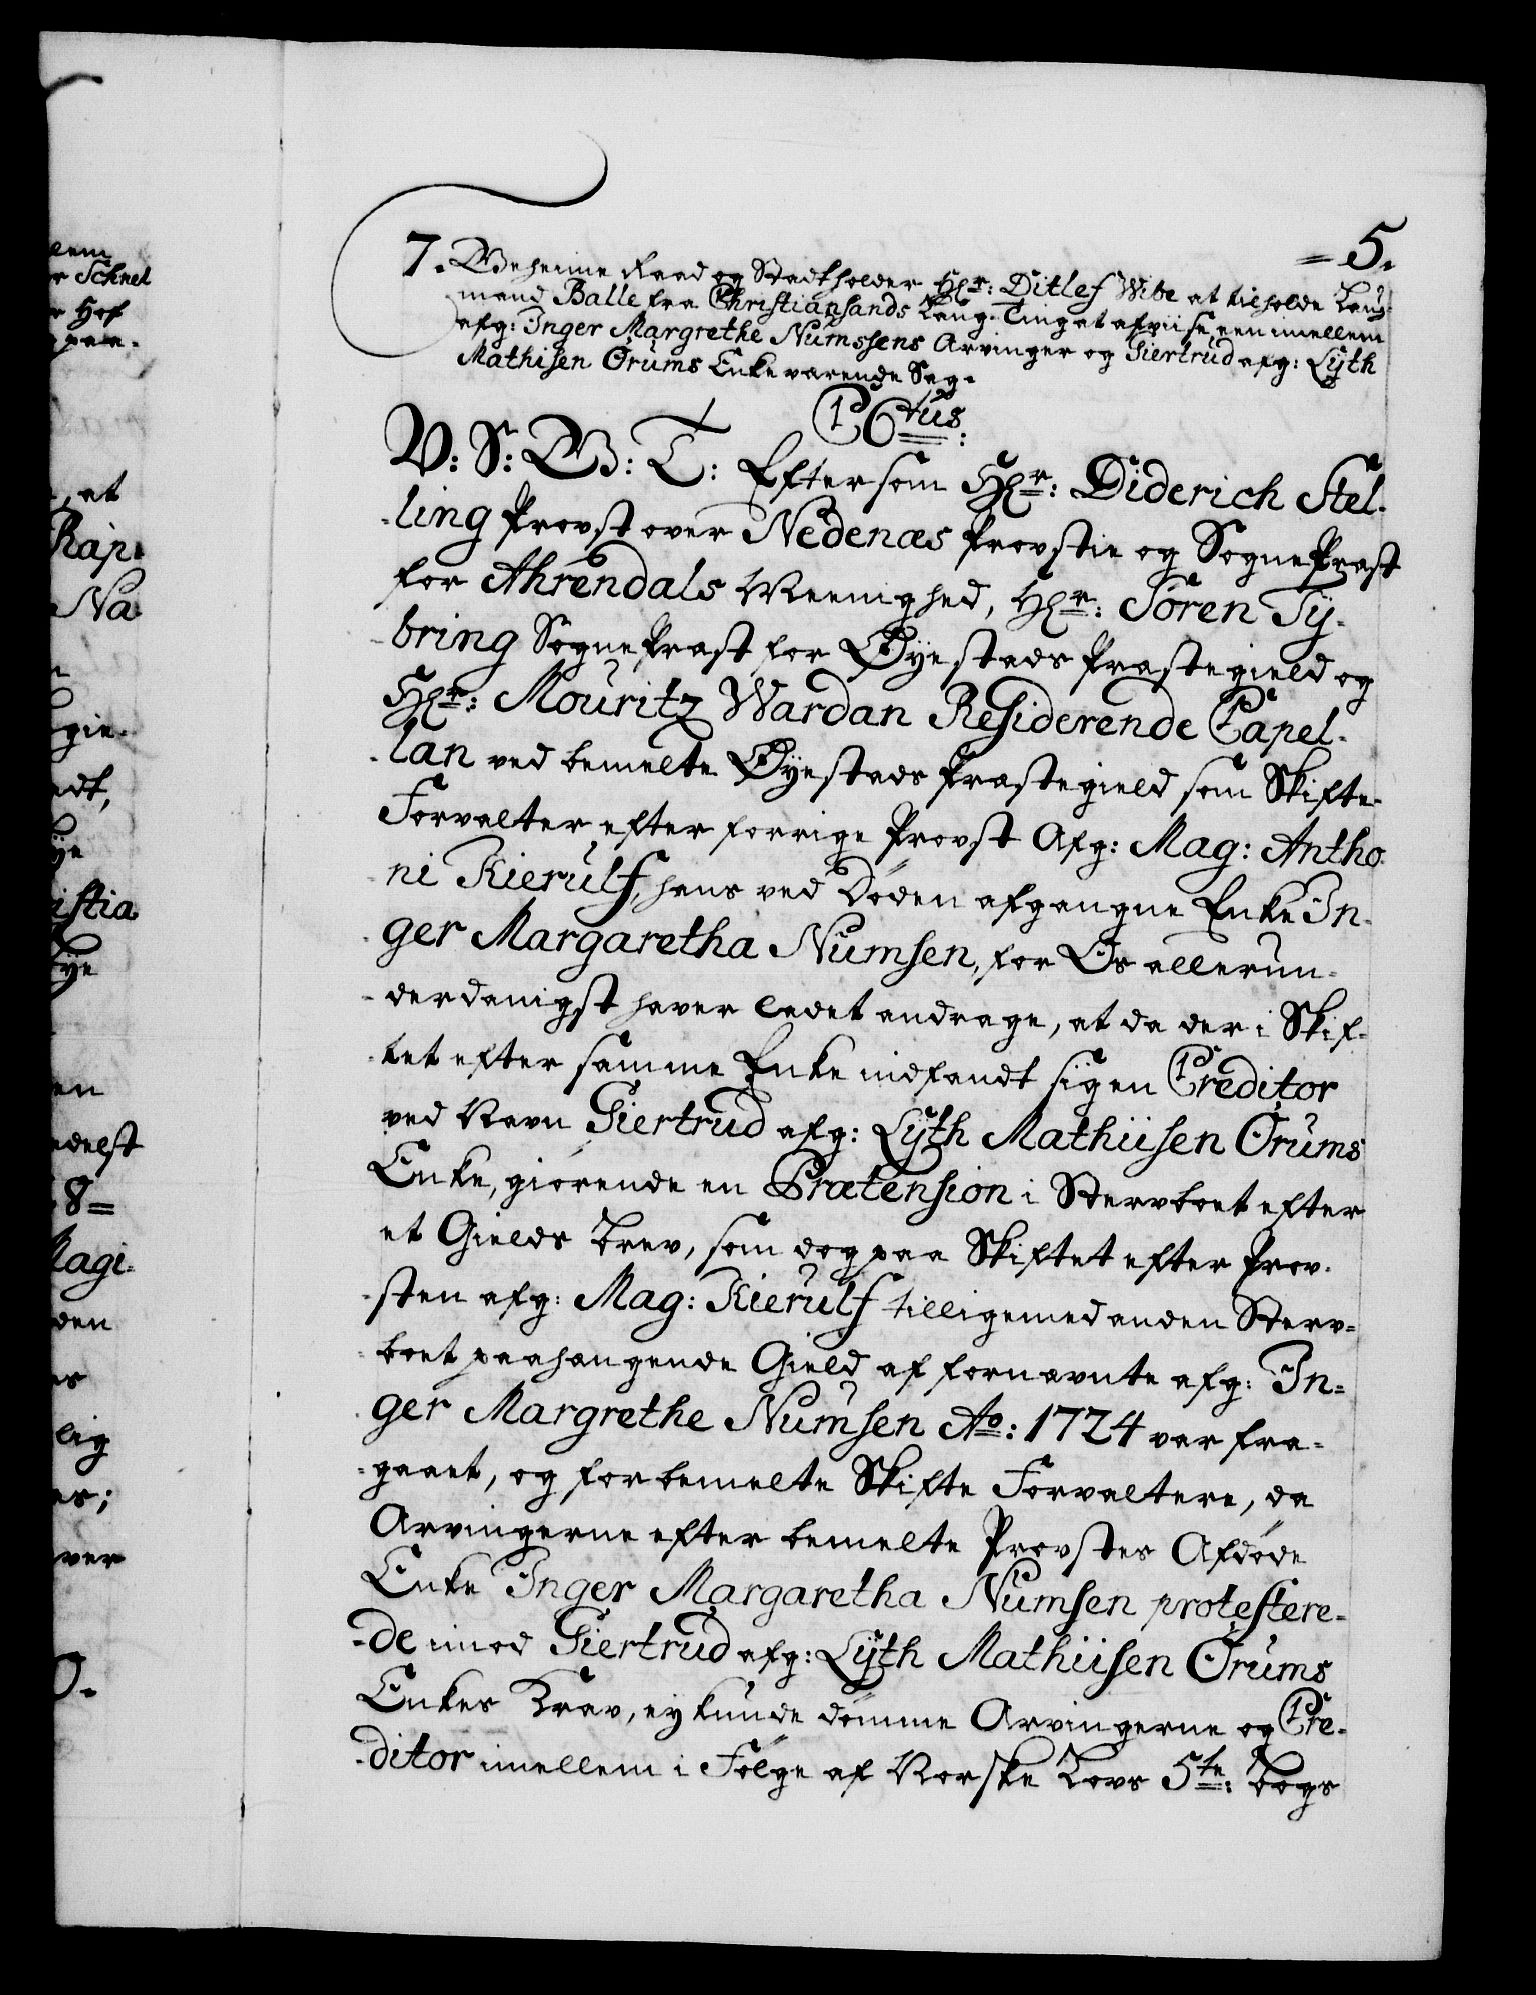 =5.
7. Geheime Raad og Stadtholder Hr: Ditlef Wibe at tilholde Laug-
mand Balle fra Christiansands Laug-Ting at afviise een imellem
afg: Inger Margrethe Numssens Arvinger og Giertrud afg: Lyth
Mathisen Örums Enke varende Sag.
C 6tus:
V: S: G: T: Eftersom Hr: Diderich Stel-
-ling Provst over Nedenæs Provstie og SognePræst
for Ahrendals Meenighed, Hr: Sören Ty-
-bring SognePræst for Øyestads Præstegield og
Hr: Mouritz Wardan Residerende Capel-
-lan ved bemelte Øyestads Præstegield som Skifte-
Forvalter efter forrige Provst Afg: Mag: Antho-
-ni Kierulf, hans ved Döden afgangne Enke In-
-ger Margaretha Numsen, for Os allerun-
-derdanigst haver ladet andrage, at da der i Skif-
-tet efter samme Enke indfandt sig en Creditor
ved Navn Giertrud afg: Lyth Mathiisen Örums
Enke, giörende en Prætension i Stervboet efter
et Gields Brev, som dog paa Skiftet efter Prov-
-sten afg: Mag: Kierulf tilligemed anden Sterv-
-boet paahængende Gield af fornævnte afg: In-
-ger Margrethe Numsen Ao: 1724 var fra-
-gaaet, og forbemelte Skifte Forvaltere, da
Arvingerne efter bemelte Provstes Afdöde
Enke Inger Margaretha Numsen protestere-
-de imod Giertrud afg: Lyth Mathiisen Örums
Enkes Krav, ey kunde dömme Arvingerne og Cre-
-ditor imellem i Fölge af Norske Lovs 5te: Bogs
lem
r Schnel
r Hof
paa-
, at
Rap-
Na
gie-
edt,
ye
istia
ye
en
edelst
8=
Magi-
den
es
lig
es;
ver